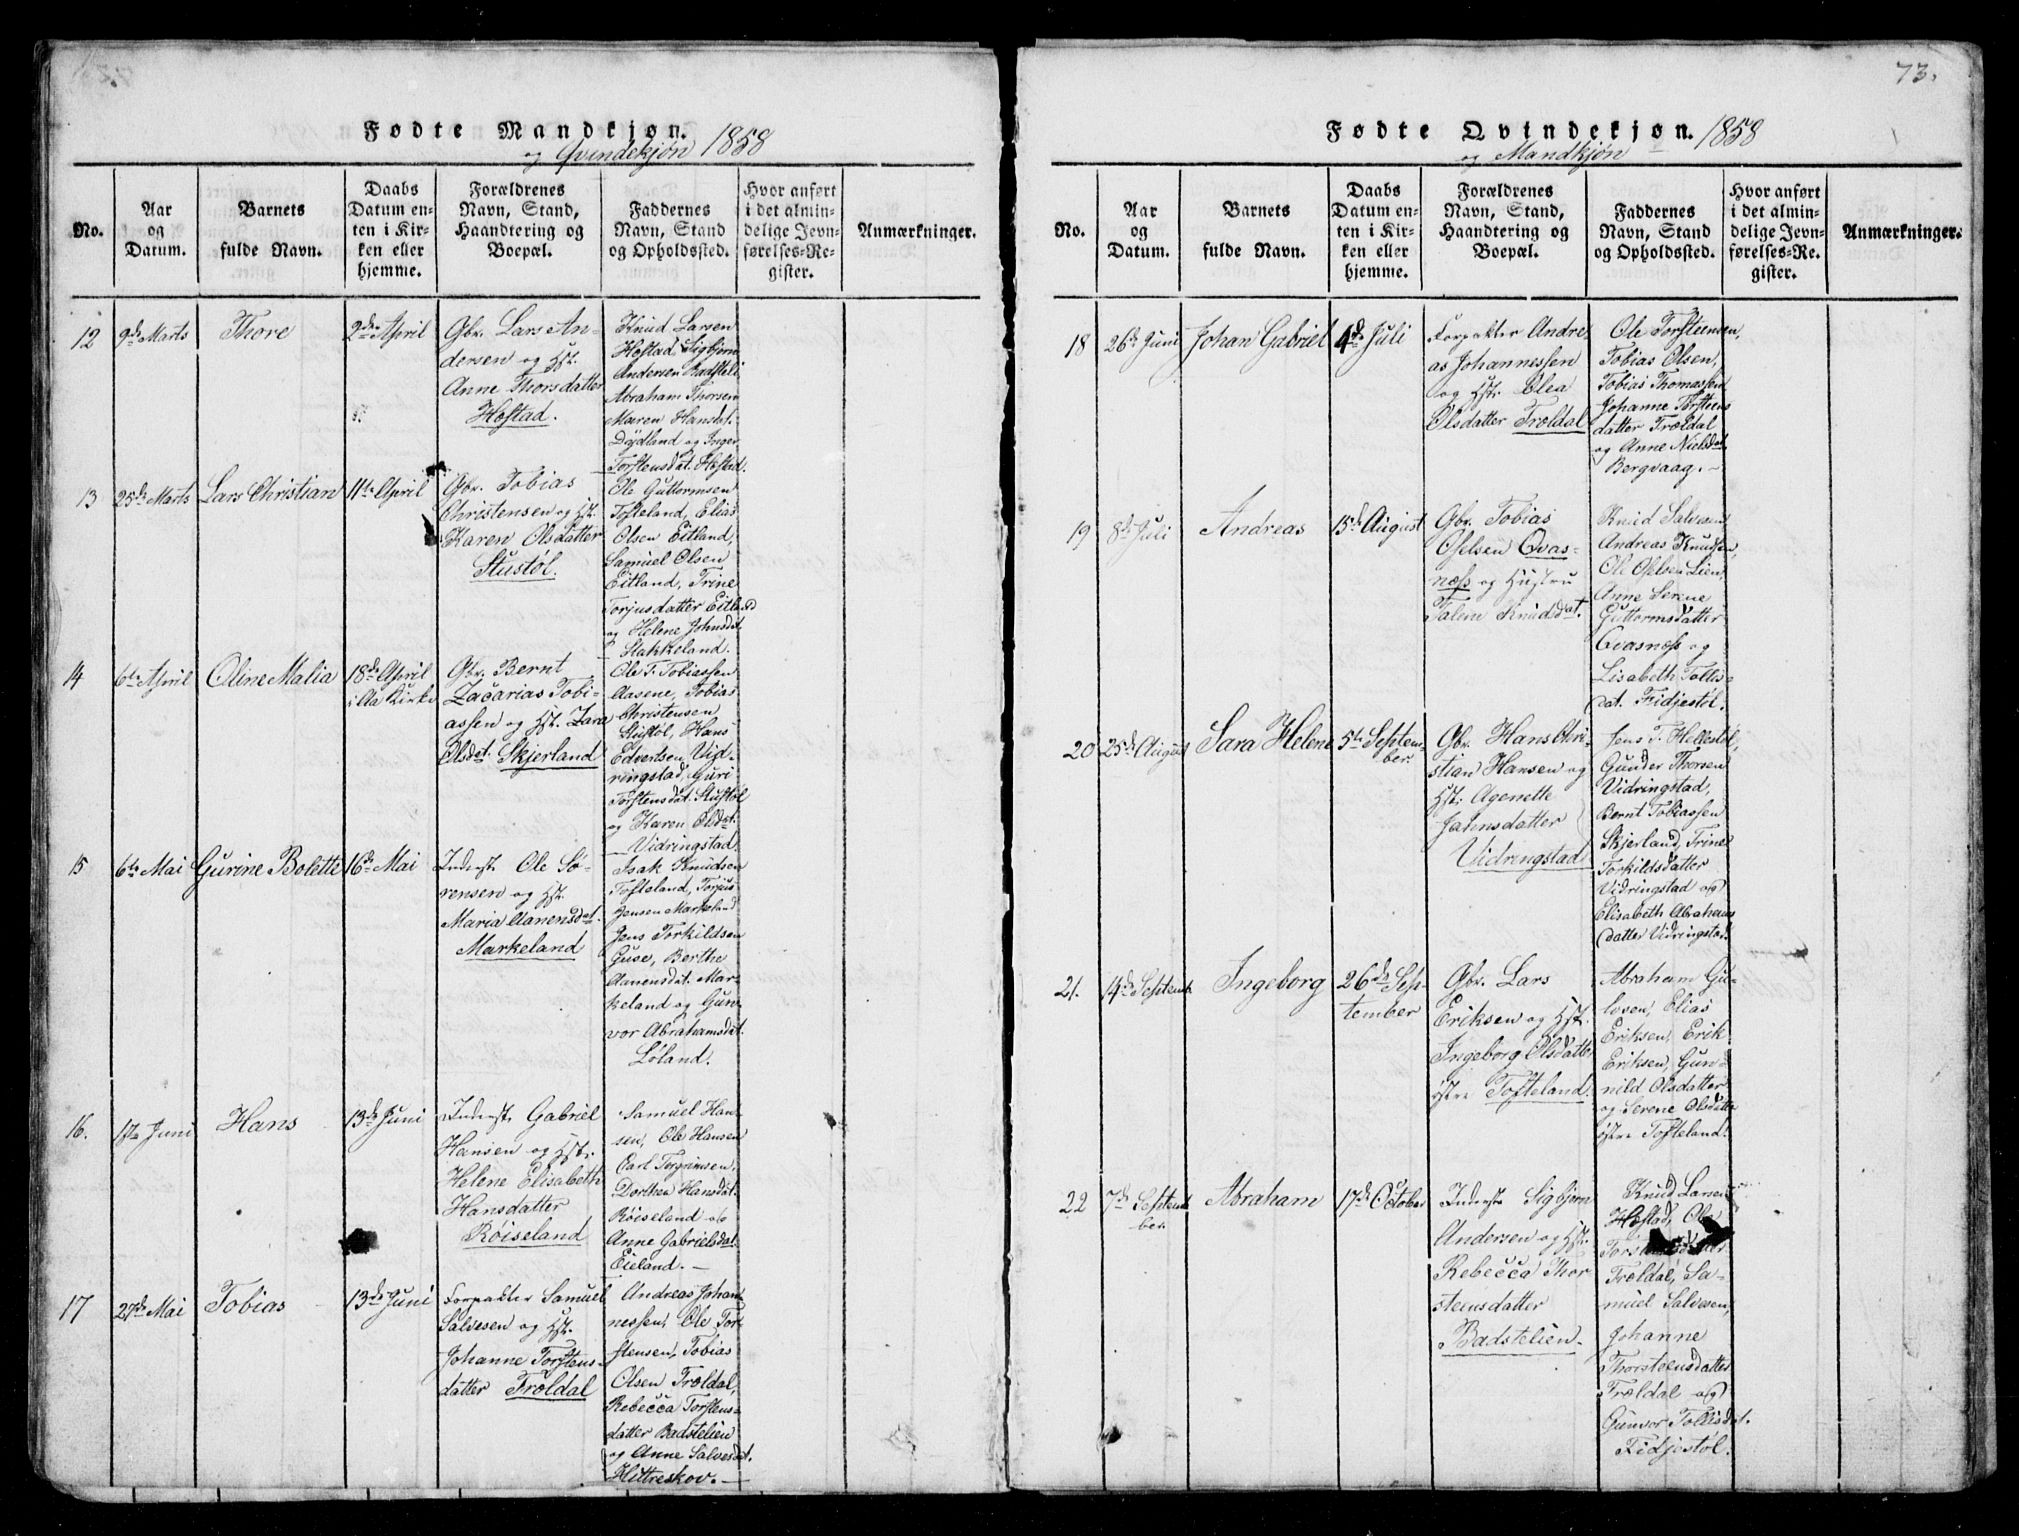 Fødte Mandkjøn. 1858
og Qvindekjøn
No.
Aar
og
Datum.
Barnets
fulde Navn.
Daabs
Datum en-
ten i Kir-
ken eller
hjemme.
Forældrenes
Navn, Stand,
Haandtering og
Boepæl.
Faddernes
Navn, Stand
og Opholdssted.
Hvor anført
i det almin-
delige Jevn-
førelses-Re-
gister.
Anmærkninger.
12
9de Marts
Thore
2den April
Gbr. Lars An-
dersen og Hst.
Anne Thorsdatter
Hofstad.
Knud Larsen
Hofstad, Sigbjørn
Andersen Badsteli
Abraham Thorsen
Maren Hansdat.
Dydland og Inger
Torstensdat. Hofstad.
13
25de Marts
Lars Christian
11te April
Gbr. Tobias
Christensen og Hst.
Karen Olsdatter
Stustøl.
Ole Guttormsen
Tofteland, Elias
Olsen Eitland,
Samuel Olsen
Eitland, Trine
Torjusdatter Eitland
og Helene Johnsdat.
Stakkeland.
14
6te April
Oline Malia
18de April
i Aa Kirke
Gbr. Bernt
Zacarias Tobi-
assen og Hst. Zara
Olsdat. Skjerland
Ole T. Tobiassen
Aasene, Tobias
Christensen
Stustøl, Hans
Edvertsen Vid-
ringstad, Guri
Torstensdat. Stustøl
og Karen Olsdat.
Vidringstad.
15
6te Mai
Gurine Bolette
16de Mai
Inderst Ole Sø-
rensen og Hst.
Maria Aanensdat.
Markeland
Isak Knudsen
Tofteland, Torjus
Jensen Markeland
Jens Torkildsen
Guse, Berthe
Aanensdat. Mar-
keland og Gun-
vor Abrahamsdat.
Løland.
16.
1ste Juni
Hans
13de Juni
Inderst Gabriel
Hansen og Hst.
Helene Elisabeth
Hansdatter
Røiseland
Samuel Han-
sen, Ole Hansen
Carl Tergrimsen,
Dorthea Hansdat.
Røiseland og
Anne Gabrielsdat.
Eieland.—
17
27de Mai
Tobias
13de Juni
Forpakter Samuel
Salvesen og Hst.
Johanne Torstens-
datter Trældal
Andreas Johan-
nessen, Ole Tor-
stensen, Tobias
Olsen Trældal,
Rebecca Torstens-
datter Badstelien
og Anne Salvesdat.
Hittreskov.—
73.
Fødte Qvindekjøn. 1858
og Mandkjøn
No.
Aar
og
Datum.
Barnets
fulde Navn.
Daabs
Datum en-
ten i Kir-
ken eller
hjemme.
Forældrenes
Navn, Stand,
Haandtering og
Boepæl.
Faddernes
Navn, Stand,
og Opholdssted.
Hvor anført
i det almin-
delige Jevn-
førelses-Re-
gister.
Anmærkninger.
18
26de Juni
Johan Gabriel
4de Juli
Forpakter Andre-
as Johannessen
og Hst. Olea
Olsdatter Trældal
Ole Torsteensen,
Tobias Olsen,
Tobias Thomassen
Johanne Torsteens
datter Trældal
og Anne Nielsdat.
Bergvaag.—
19
8de Juli
Andreas
15de August
Gbr. Tobias
Oselsen Qvas-
næss og Hustru
Talene Knudsdat.
Knud Salvesen
Andreas Knudsen,
Ole Oselsen Lien,
Anne Serene
Guttormsdatter
Qvasnæss og
Lisabeth Tollis-
dat. Fidjestøl.
20
25de August
Sara Helene
5te Septem-
ber.
Gbr. Hans Chri-
stian Hansen og
Hst. Agenette
Jahnsdatter
Vidringstad
Jens T. Hellestøl,
Gunder Thorsen
Vidringstad,
Bernt Tobiassen
Skjerland, Trine
Torkildsdatter
Vidringstad og
Elisabeth Abrahams
datter Vidringstad.
21.
14de Septemb.
Ingeborg
26de Sep-
tember
Gbr. Lars
Eriksen og Hst.
Ingeborg Olsdatter
østre Tofteland.
Abraham Gu-
lvsen, Elias
Eriksen, Erik
Eriksen, Gun-
nild Olsdatter
og Serene Olsdatter
østre Tofteland.
22
7de Septem-
ber.
Abraham
17de October
Inderst Sigbjørn
Andersen og Hst.
Rebecca Thor
steensdatter
Badstelien.
Knud Larsen
Hofstad, Ole
Trældal, Sa-
muel Salvesen,
Johanne
Thorsteensdatter
Trældal og
Gunvor Tollisdat.
Fidjestøl.